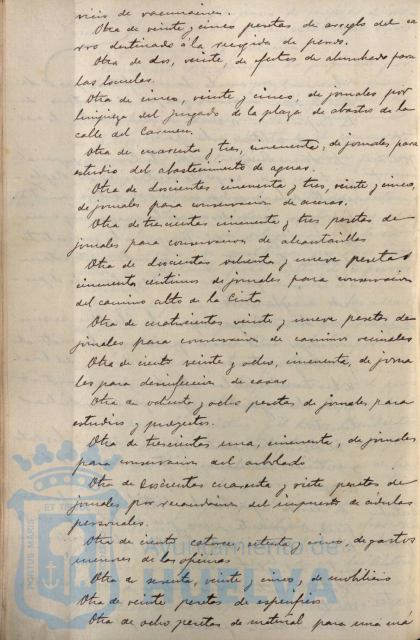 vicio de vacunacion.
Otra de veinte y cinco pesetas de arreglo del ca
rro destinado á la recogida de perros.
Otra de dos, veinte, de efectos de alumbrado para
las Escuelas.
Otra de cinco, veinte y cinco, de jornales por
limpieza del Juzgado de la plaza de abastos de la
calle del Carmen.
Otra de cuarenta y tres, cincuenta, de jornales para
estudio del abastecimiento de aguas.
Otra de doscientos cincuenta y tres, veinte y cinco,
de jornales para conservacion de aceras.
Otra de trescientas cincuenta y tres pesetas de
jornales para conservacion de alcantarillas
Otra de doscientas ochenta y nueve pesetas
cincuenta centimos de jornales para conservacion
del camino alto de la Cinta
Otra de cuatrocientas veinte y nueve pesetas de
jornales para conservacion de caminos vecinales
Otra de ciento veinte y ocho, cincuenta, de jorna
les para desinfeccion de casas
Otra de ochenta y ocho pesetas, de jornales para
estudios y proyectos.
Otra de trescientas una, cincuenta, de jornales
para conservacion del arbolado
Otra de doscientas cuarenta y siete pesetas de
jornales por recaudacion del impuesto de cédulas
personales.
Otra de ciento catorce, setenta y cinco, de gastos
menores de las oficinas
Otra de sesenta, veinte y cinco, de mobiliario
Otra de veinte pesetas de especificos
Otra de ocho pesetas de material para una má
PORTUS MARIS ET T
Ayuntamiento de
HUELVA